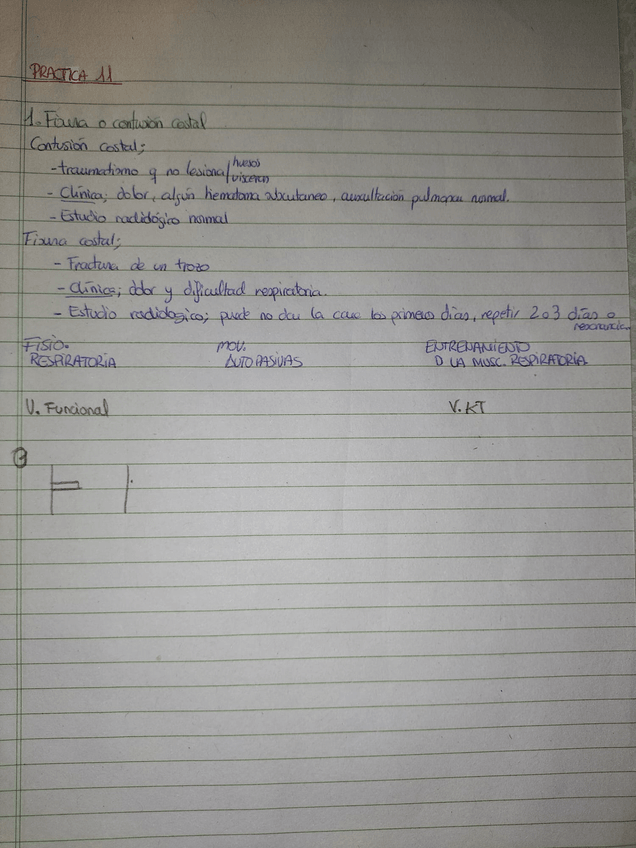 PRACTICA 11
1. Fisura o contusión costal
Contusión costal;
- traumatismo q no lesiona/ huesos
visceras
- Clínica; dolor, algún hematoma subcutaneo, auscultación pulmonar normal.
- Estudio radiológico normal
Fisura costal;
- Fractura de un trozo
- Clínica; dolor y dificultad respiratoria.
- Estudio radiologico; puede no dar la cara los primeros días, repetir 2 o 3 días o
FISIO. MOV. ENTRENAMIENTO
RESPIRATORIA AUTOPASIVAS D LA MUSC. RESPIRATORIA
V. Funcional V. KT